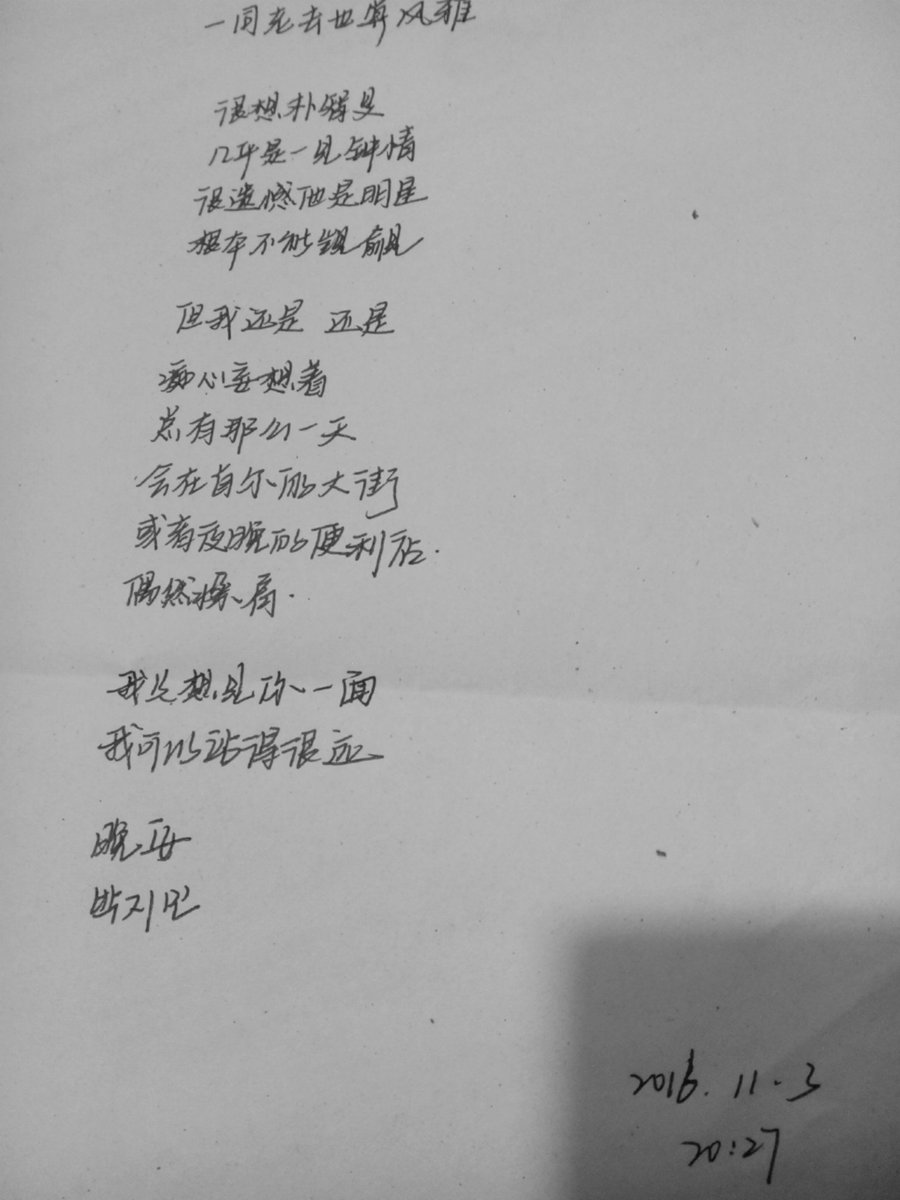 一同老去也算风雅
很想朴智旻
几乎是一见钟情
很遗憾他是明星
根本不能觊觎
但我还是 还是
痴心妄想着
总有那么一天
会在首尔的大街
或者夜晚的便利店.
偶然擦肩.
我只想见你一面
我可以站得很远
晚安
박지민
2016.11.3
20:27